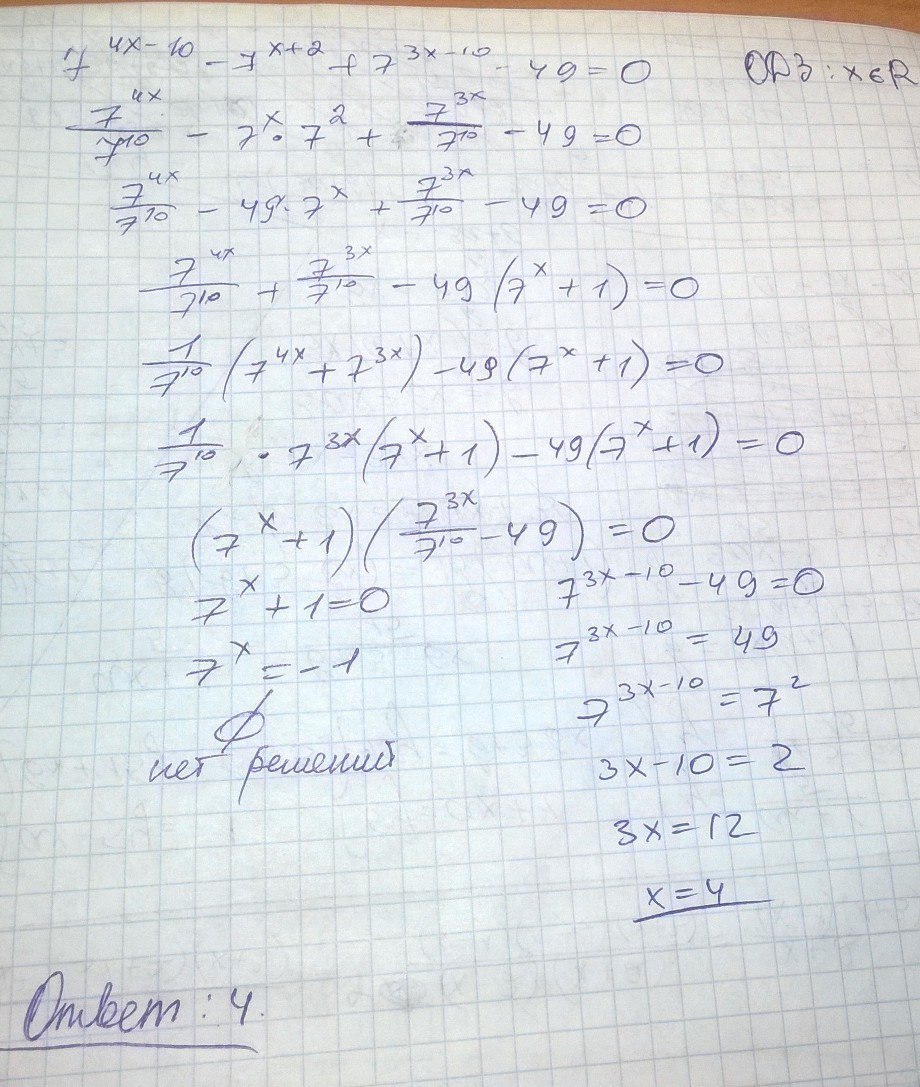 7^{4x-10} - 7^{x+2} + 7^{3x-10} - 49 = 0 ОДЗ: x∈R
\frac{7^{4x}}{7^{10}} - 7^x · 7^2 + \frac{7^{3x}}{7^{10}} - 49 = 0
\frac{7^{4x}}{7^{10}} - 49 · 7^x + \frac{7^{3x}}{7^{10}} - 49 = 0
\frac{7^{4x}}{7^{10}} + \frac{7^{3x}}{7^{10}} - 49 (7^x + 1) = 0
\frac{1}{7^{10}} (7^{4x} + 7^{3x}) - 49 (7^x + 1) = 0
\frac{1}{7^{10}} · 7^{3x} (7^x + 1) - 49 (7^x + 1) = 0
(7^x + 1) (\frac{7^{3x}}{7^{10}} - 49) = 0
7^x + 1 = 0
7^x = -1
∅
нет решений
7^{3x-10} - 49 = 0
7^{3x-10} = 49
7^{3x-10} = 7^2
3x - 10 = 2
3x = 12
x = 4
Ответ: 4.